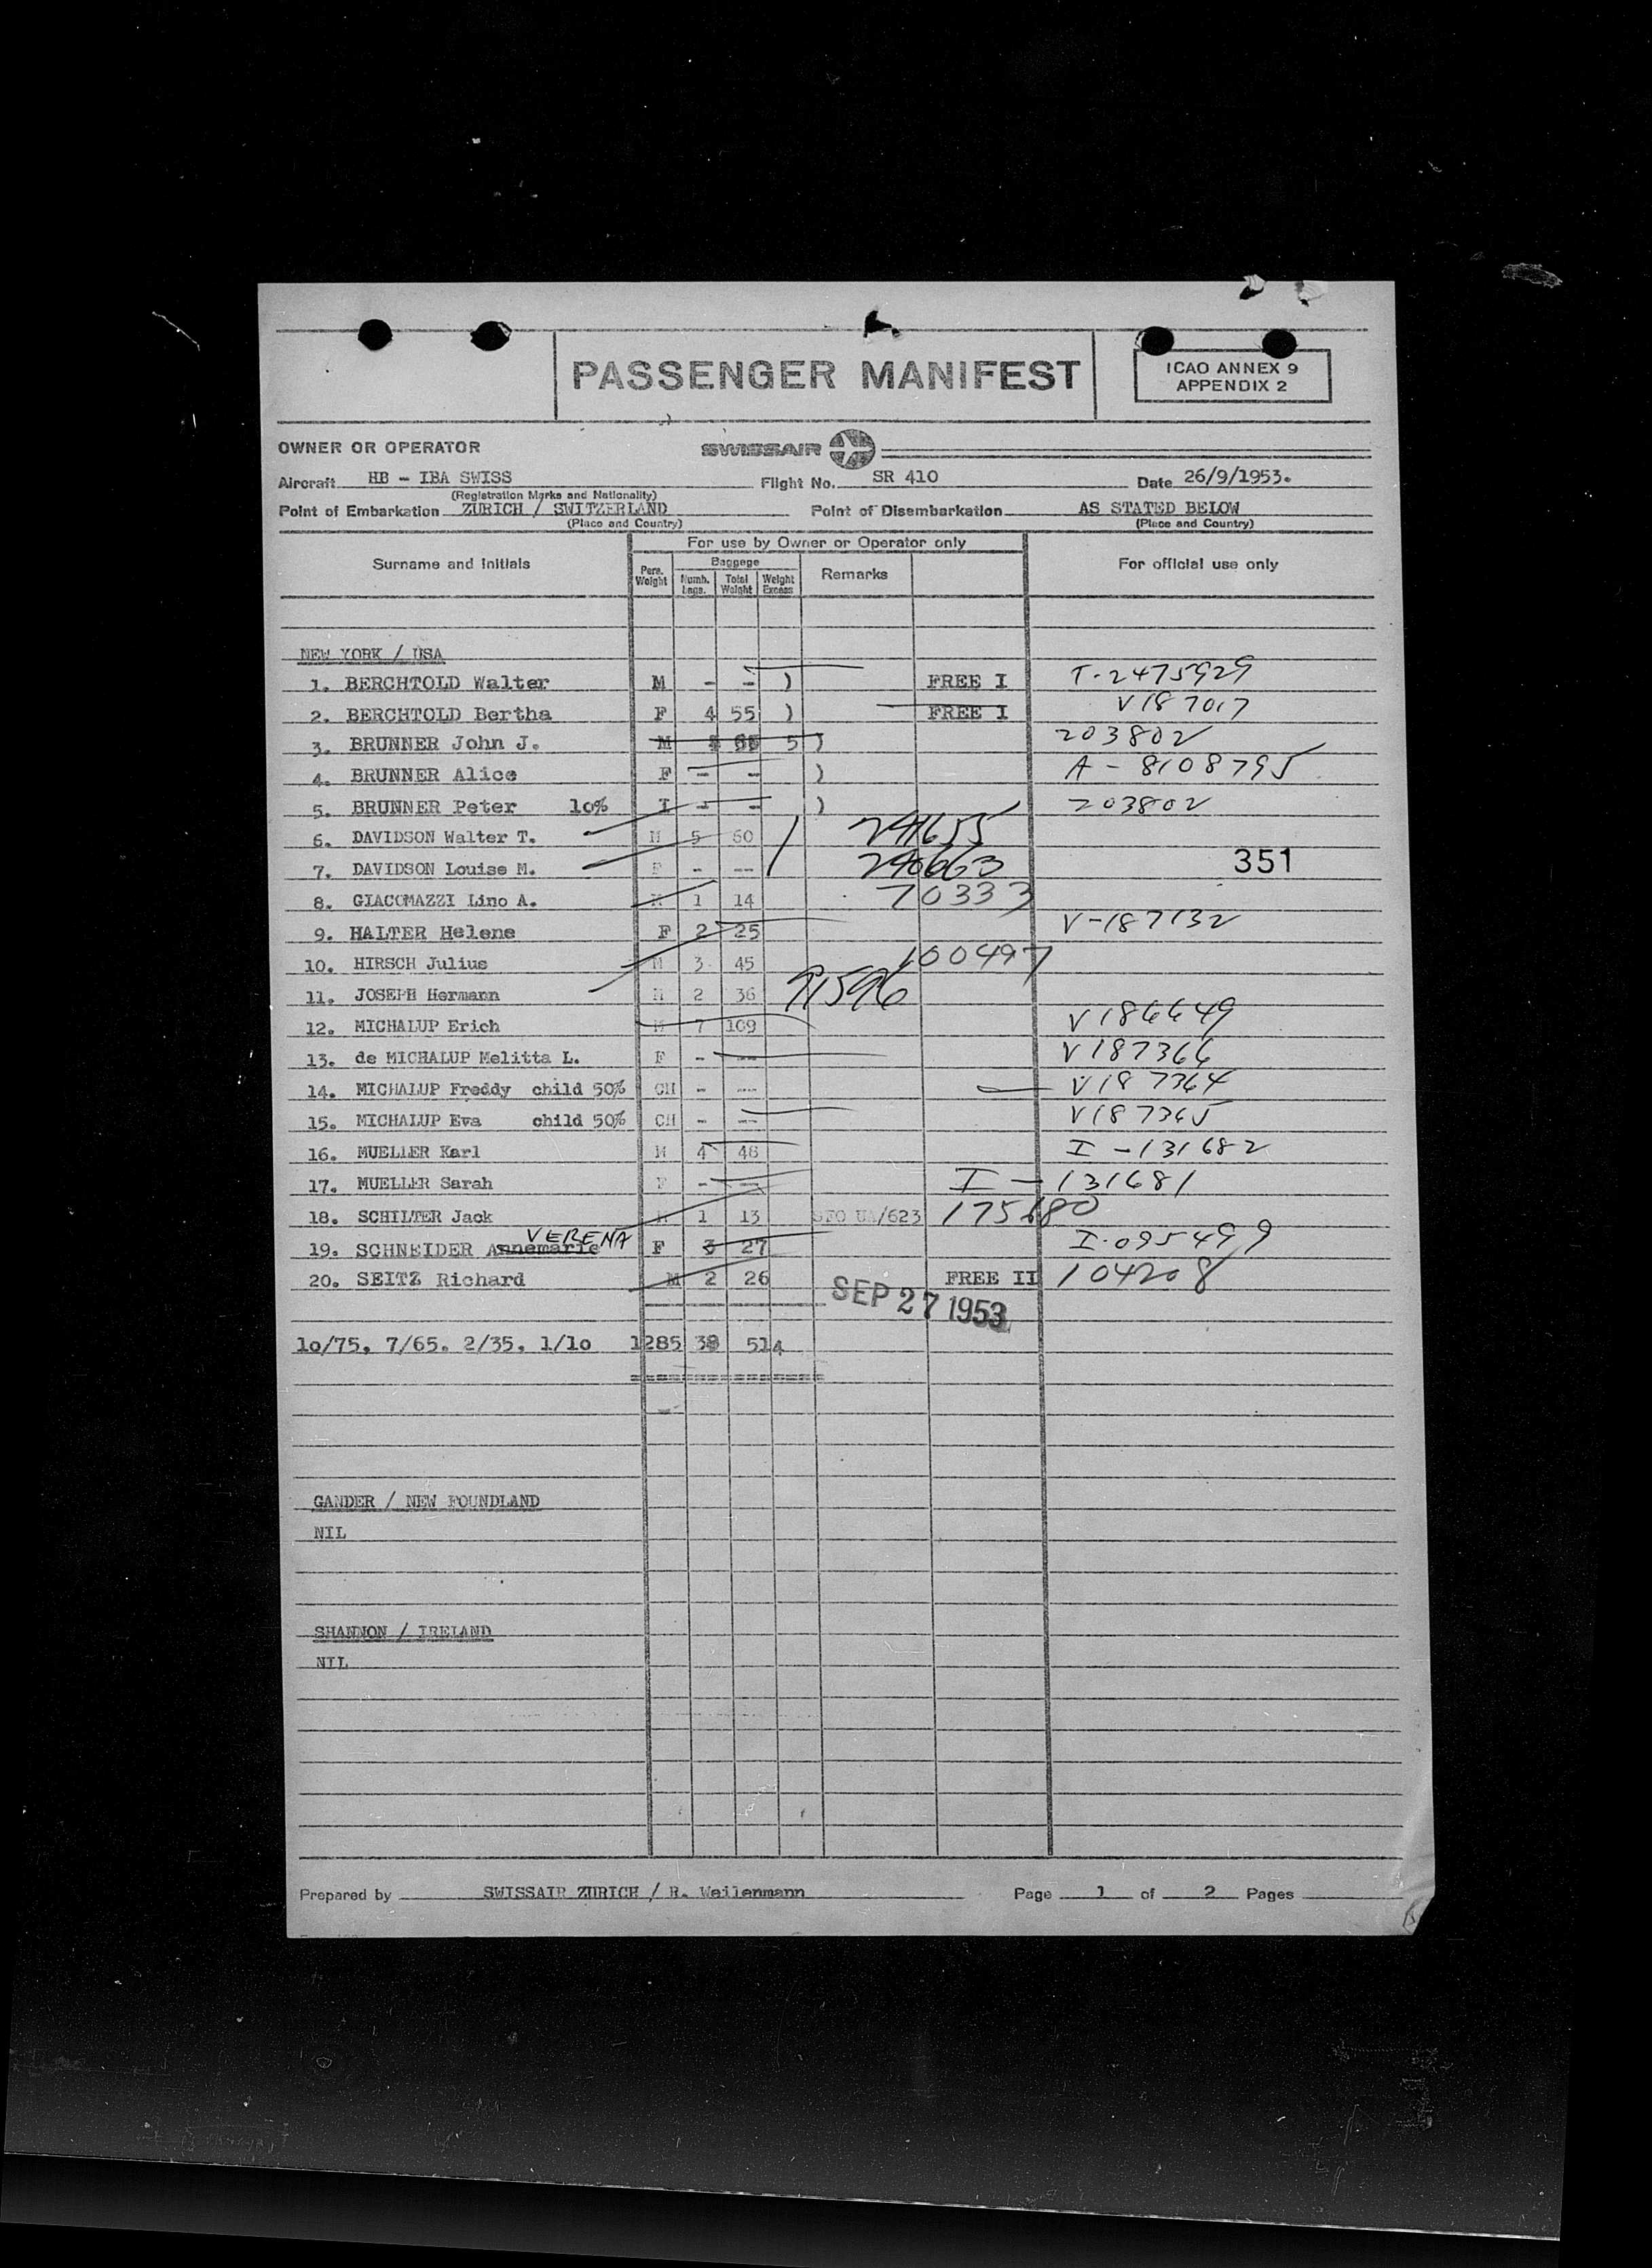 PASSENGER MANIFEST
ICAO ANNEX 9
APPENDIX 2
OWNER OR OPERATOR SWISSAIR
Aircraft HB - IBA SWISS Flight No. SR 410 Date 26/9/1953.
(Registration Marks and Nationality)
Point of Embarkation ZURICH / SWITZERLAND Point of Disembarkation AS STATED BELOW
(Place and Country) (Place and Country)
For use by Owner or Operator only
Surname and initials Pers. Weight Baggage Numb. Lugg. Total Weight Weight Excess Remarks For official use only
NEW YORK / USA
1. BERCHTOLD Walter M - - ) FREE I T-2475929
2. BERCHTOLD Bertha F 4 55 ) FREE I V187017
3. BRUNNER John J. M 5 ) 203802
4. BRUNNER Alice F - - ) A-8108795
5. BRUNNER Peter 10% I - - ) 203802
6. DAVIDSON Walter T. M 5 60 241655
7. DAVIDSON Louise M. F - -- 240663 351
8. GIACOMAZZI Lino A. M 1 14 70333
9. HALTER Helene F 2 25 V-187132
10. HIRSCH Julius M 3 45 100497
11. JOSEPH Hermann M 2 36 91596
12. MICHALUP Erich M 7 109 V186649
13. de MICHALUP Melitta L. F - -- V187366
14. MICHALUP Freddy child 50% CH - -- V187364
15. MICHALUP Eva child 50% CH - -- V187365
16. MUELLER Karl M 4 48 I-131682
17. MUELLER Sarah F - -- I-131681
18. SCHILTER Jack M 1 13 SFO UA/623 175180
VERENA
19. SCHNEIDER Annemarie F 3 27 I-095499
20. SEITZ Richard M 2 26 FREE II 104208
SEP 27 1953
10/75, 7/65, 2/35, 1/10 1285 39 514
GANDER / NEW FOUNDLAND
NIL
SHANNON / IRELAND
NIL
Prepared by SWISSAIR ZURICH / R. Weilenmann Page 1 of 2 Pages